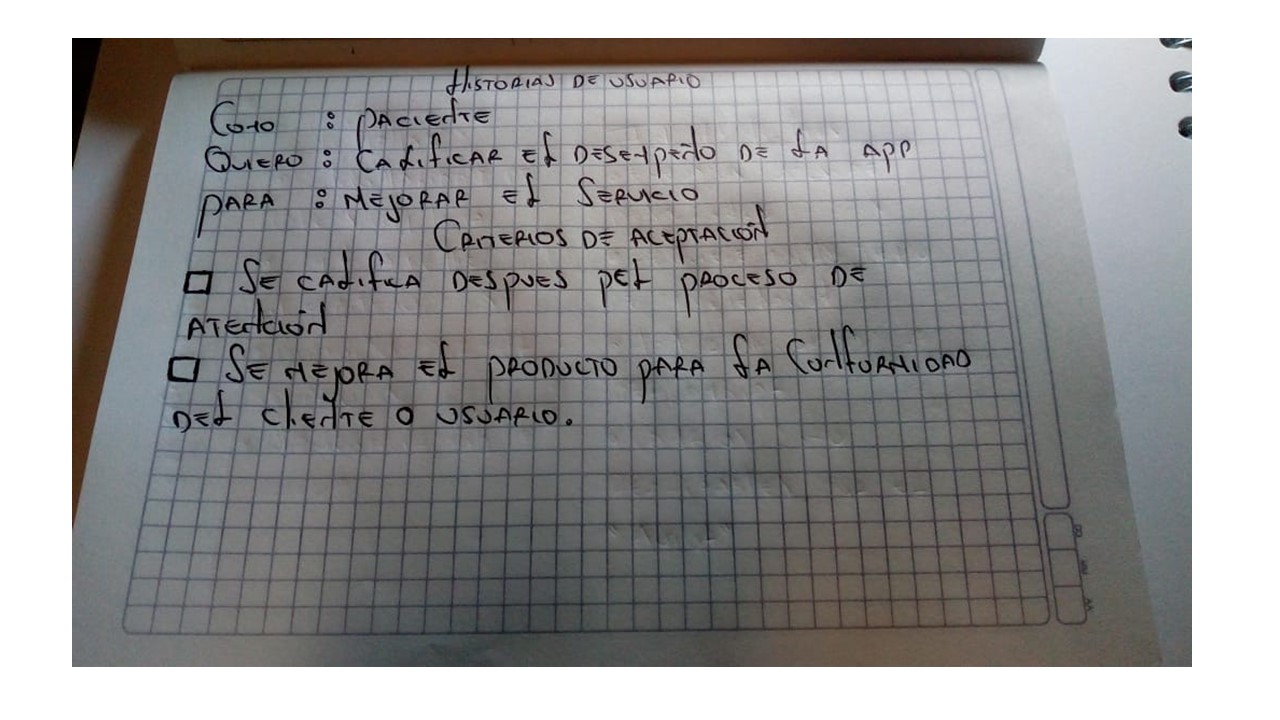 HISTORIAS DE USUARIO
Como : paciente
Quiero : Calificar el desempeño de la app
para : Mejorar el Servicio
Criterios de aceptación
□ Se califica despues pel proceso de
Atención
□ Se mejora el producto para la Conformidad
del cliente o usuario.